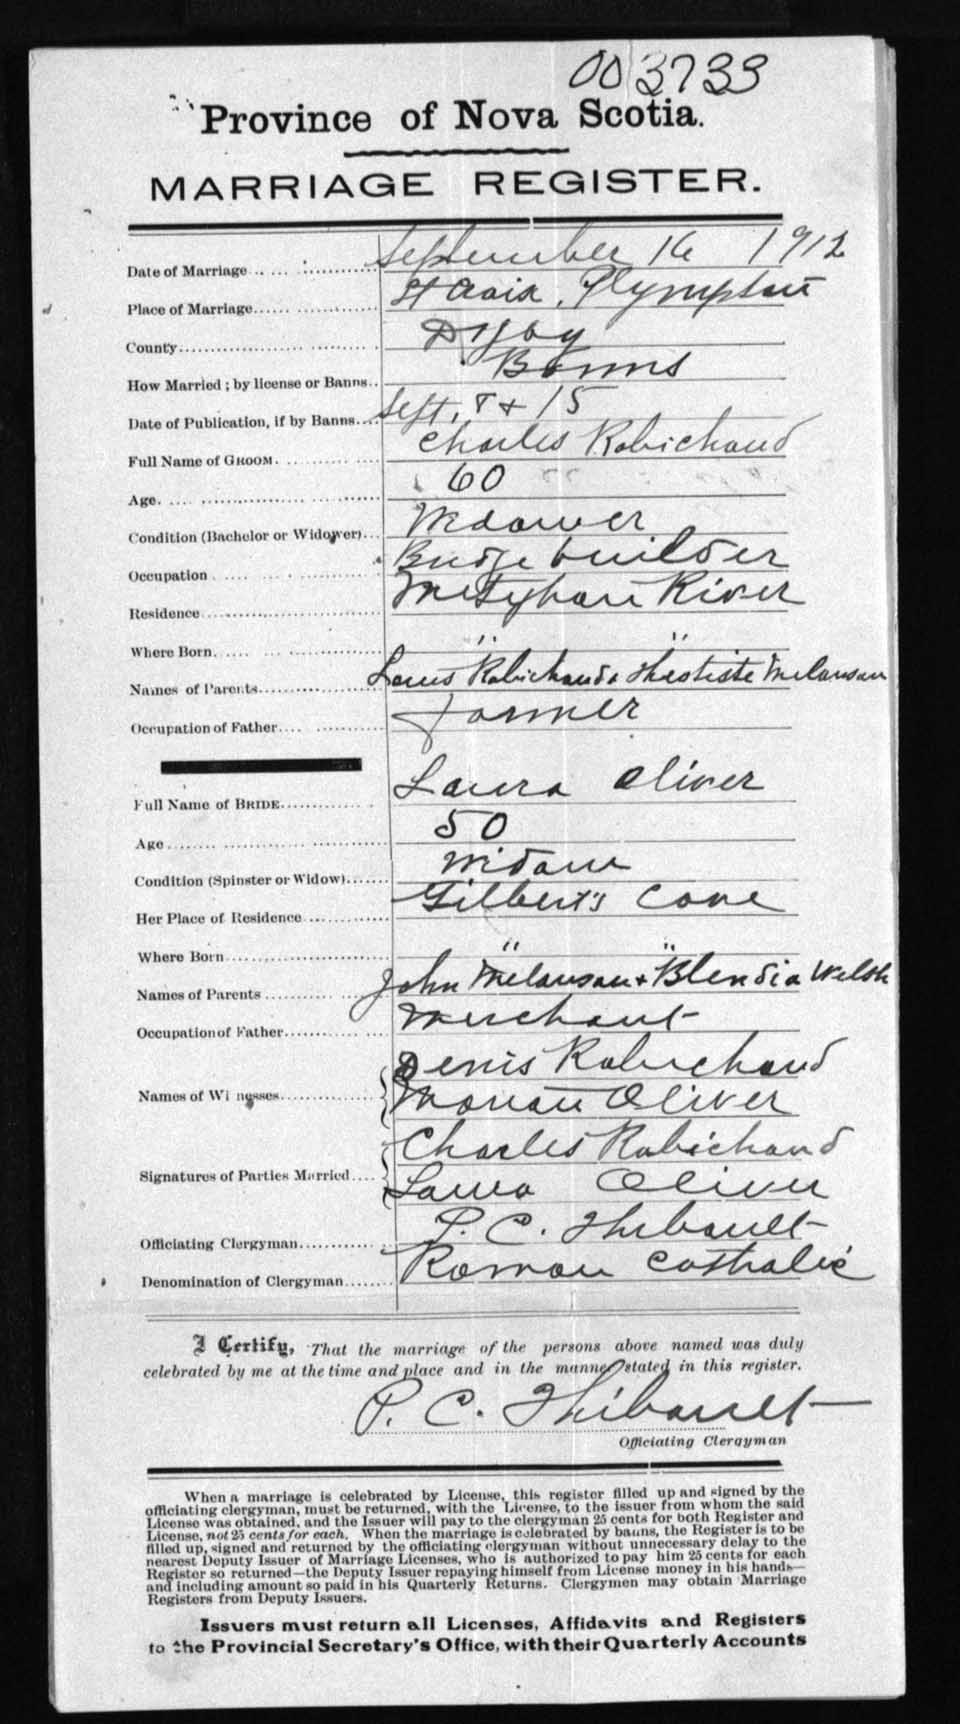 003733
Province of Nova Scotia.
MARRIAGE REGISTER.
Date of Marriage September 16 1912
Place of Marriage St Croix, Plympton
County Digby
How Married; by license or Banns.. Banns
Date of Publication, if by Banns.... Sept. 8 + 15
Full Name of GROOM. Charles Robichaud
Age. 60
Condition (Bachelor or Widower)... Widower
Occupation Bridge builder
Residence Meteghan River
Where Born. " "
Names of Parents Louis Robichaud & Melanson
Occupation of Father Farmer
Full Name of BRIDE Laura Oliver
Age 50
Condition (Spinster or Widow) Widow
Her Place of Residence Gilbert's Cove
Where Born " "
Names of Parents John Melanson + Blendia Welsh
Occupation of Father Merchant
Names of Witnesses Denis Robichaud
Oliver
Signatures of Parties Married Charles Robichaud
Laura Oliver
Officiating Clergyman P. C. Thibault
Denomination of Clergyman Roman Catholic
I Certify, That the marriage of the persons above named was duly
celebrated by me at the time and place and in the manner stated in this register.
P. C. Thibault
Officiating Clergyman
When a marriage is celebrated by License, this register filled up and signed by the
officiating clergyman, must be returned, with the License, to the issuer from whom the said
License was obtained, and the Issuer will pay to the clergyman 25 cents for both Register and
License, not 25 cents for each. When the marriage is celebrated by banns, the Register is to be
filled up, signed and returned by the officiating clergyman without unnecessary delay to the
nearest Deputy Issuer of Marriage Licenses, who is authorized to pay him 25 cents for each
Register so returned—the Deputy Issuer repaying himself from License money in his hands—
and including amount so paid in his Quarterly Returns. Clergymen may obtain Marriage
Registers from Deputy Issuers.
Issuers must return all Licenses, Affidavits and Registers
to the Provincial Secretary's Office, with their Quarterly Accounts